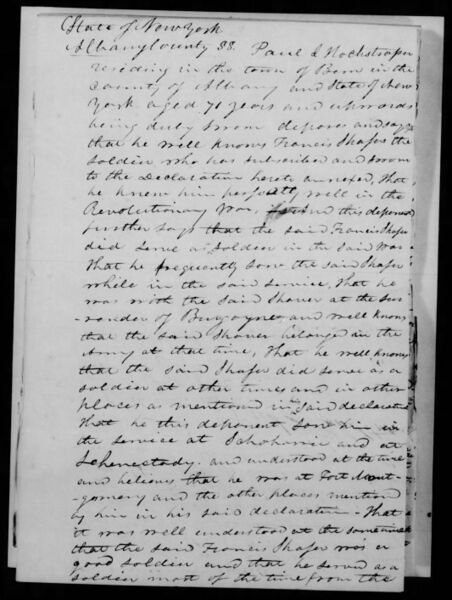 State of New York
Albany County SS. Paul L Hochstrasser
residing in the town of Bern in the
County of Albany and State of New
York aged 71 years and upwards
being duly sworn deposes and says
that he well knows Francis Shafer the
soldier who has subscribed and sworn
to the Declaration hereto annexed, that
he knew him perfectly well in the
Revolutionary War, and this deponent
further says that the said Francis Shafer
did serve as Soldier in the said War
that he frequently saw the said Shafer
while in the said service, that he
was with the said Shaver at the Sur-
-render of Burgoyne and well knows
that the said Shaver belonged in the
Army at that time, that he well knows
that the said Shafer did serve as a
soldier at other times and in other
places as mentioned in said declaration
that he this deponent saw him in
the service at Schoharie and at
Schenectady. and understood at the time
and believes that he was at Fort Mont-
-gomery and the other places mention
by him in his said declaration - That
it was well understood at the same time
that the said Francis Shafer was a
good soldier and that he served as a
soldier most of the time from the